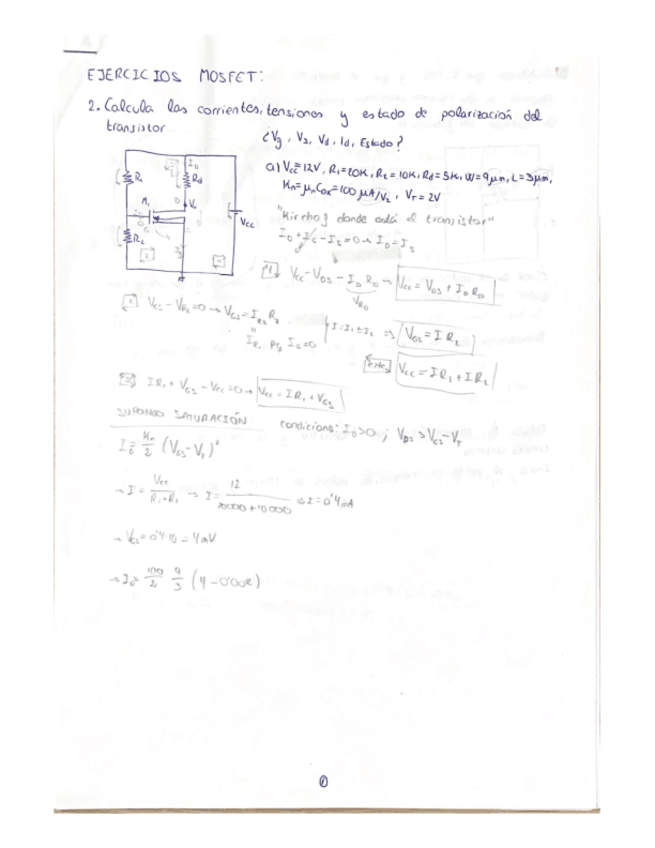 EJERCICIOS MOSFET:
2. Calcula las corrientes, tensiones y estado de polarización del
transistor
¿Vg, Vs, Vd, Id, Estado?
a) Vcc=12V, R1=20K, R2=10K, Rd=5K, W=9μm, L=3μm,
Kn=μnCox=100 μA/V2, VT=2V
ID
R1
Rd
M1
D
Vcc
R2
"Kirchof donde está el transistor"
ID + IG - IS = 0 → ID = IS
Vcc - VDS - ID RD → Vcc = VDS + ID RD
VRD
VGS - VR2 = 0 → VGS = IR2 R2
IG = 0
VGS = I R2
Vcc = I R1 + I R2
I R1 + VGS - Vcc = 0 → Vcc = I R1 + VGS
SUPONGO SATURACIÓN
condicions: ID > 0 ; VDS > VGS - VT
ID = Kn/2 (VGS - VT)²
→ I = Vcc/(R1+R2) → I = 12/(20000+10000) → I = 0'4mA
→ VGS = 0'4·10 = 4mV
→ ID = 100/2 9/3 (4 - 0'002)
1